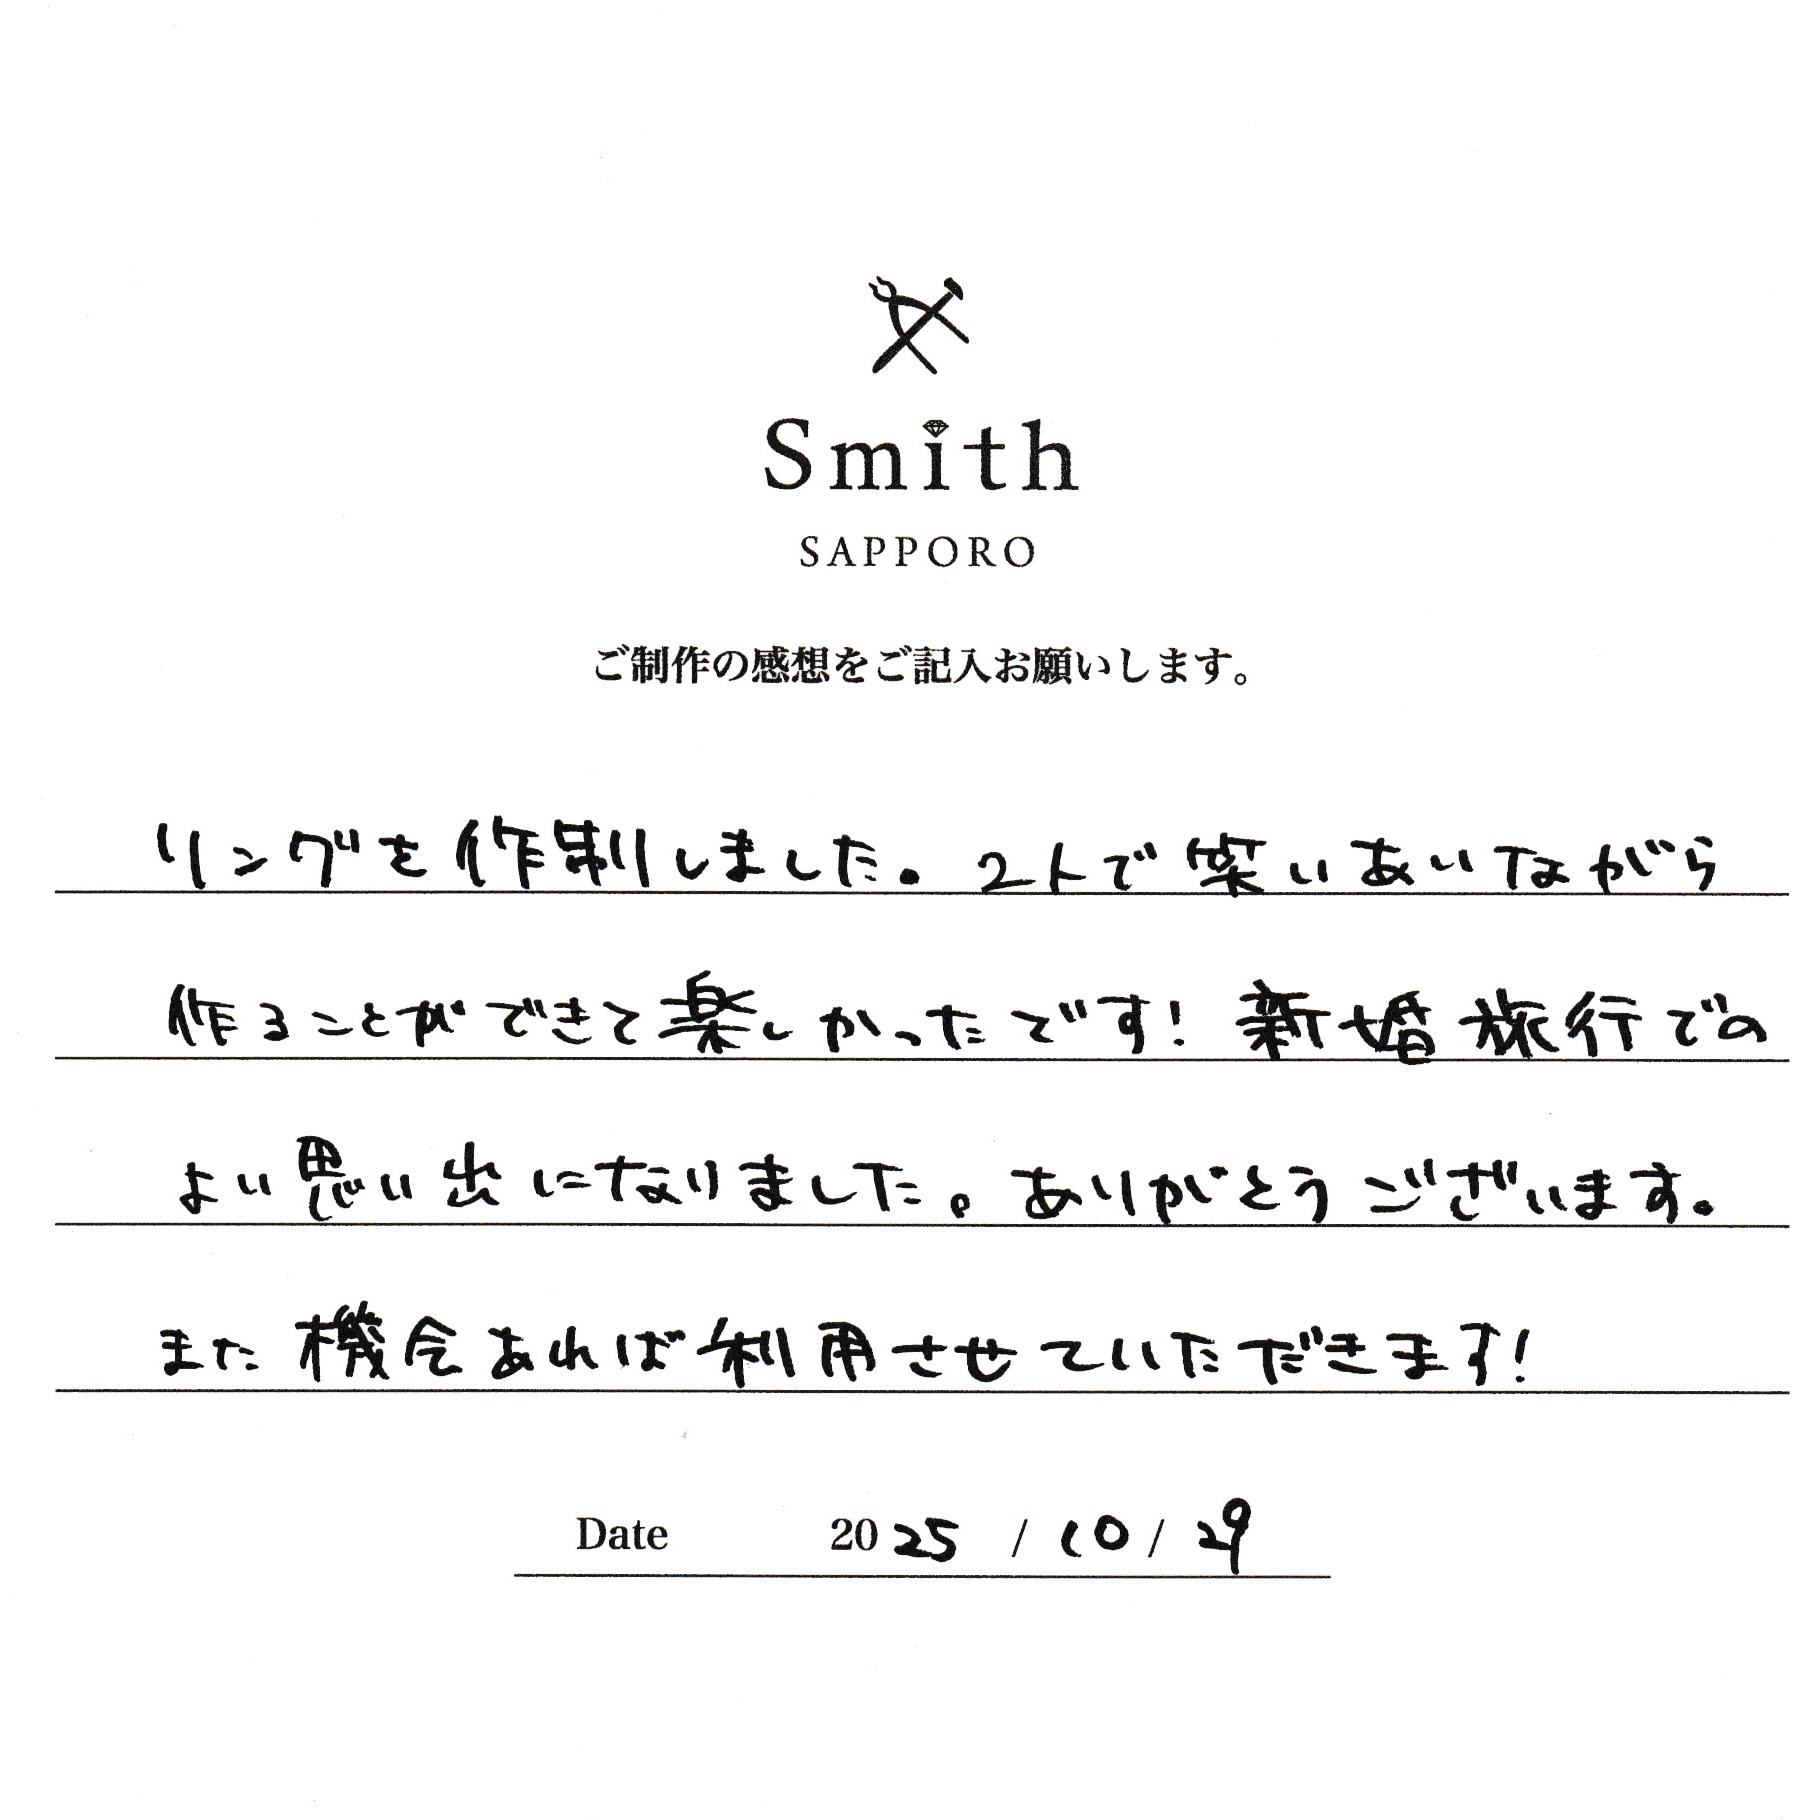 Smith
SAPPORO
ご制作の感想をご記入お願いします。
リングを作制しました。2人で笑いあいながら
作ることができて楽しかったです！新婚旅行での
よい思い出になりました。ありがとうございます。
また機会あれば利用させていただきます！
Date 2025 / 10 / 29